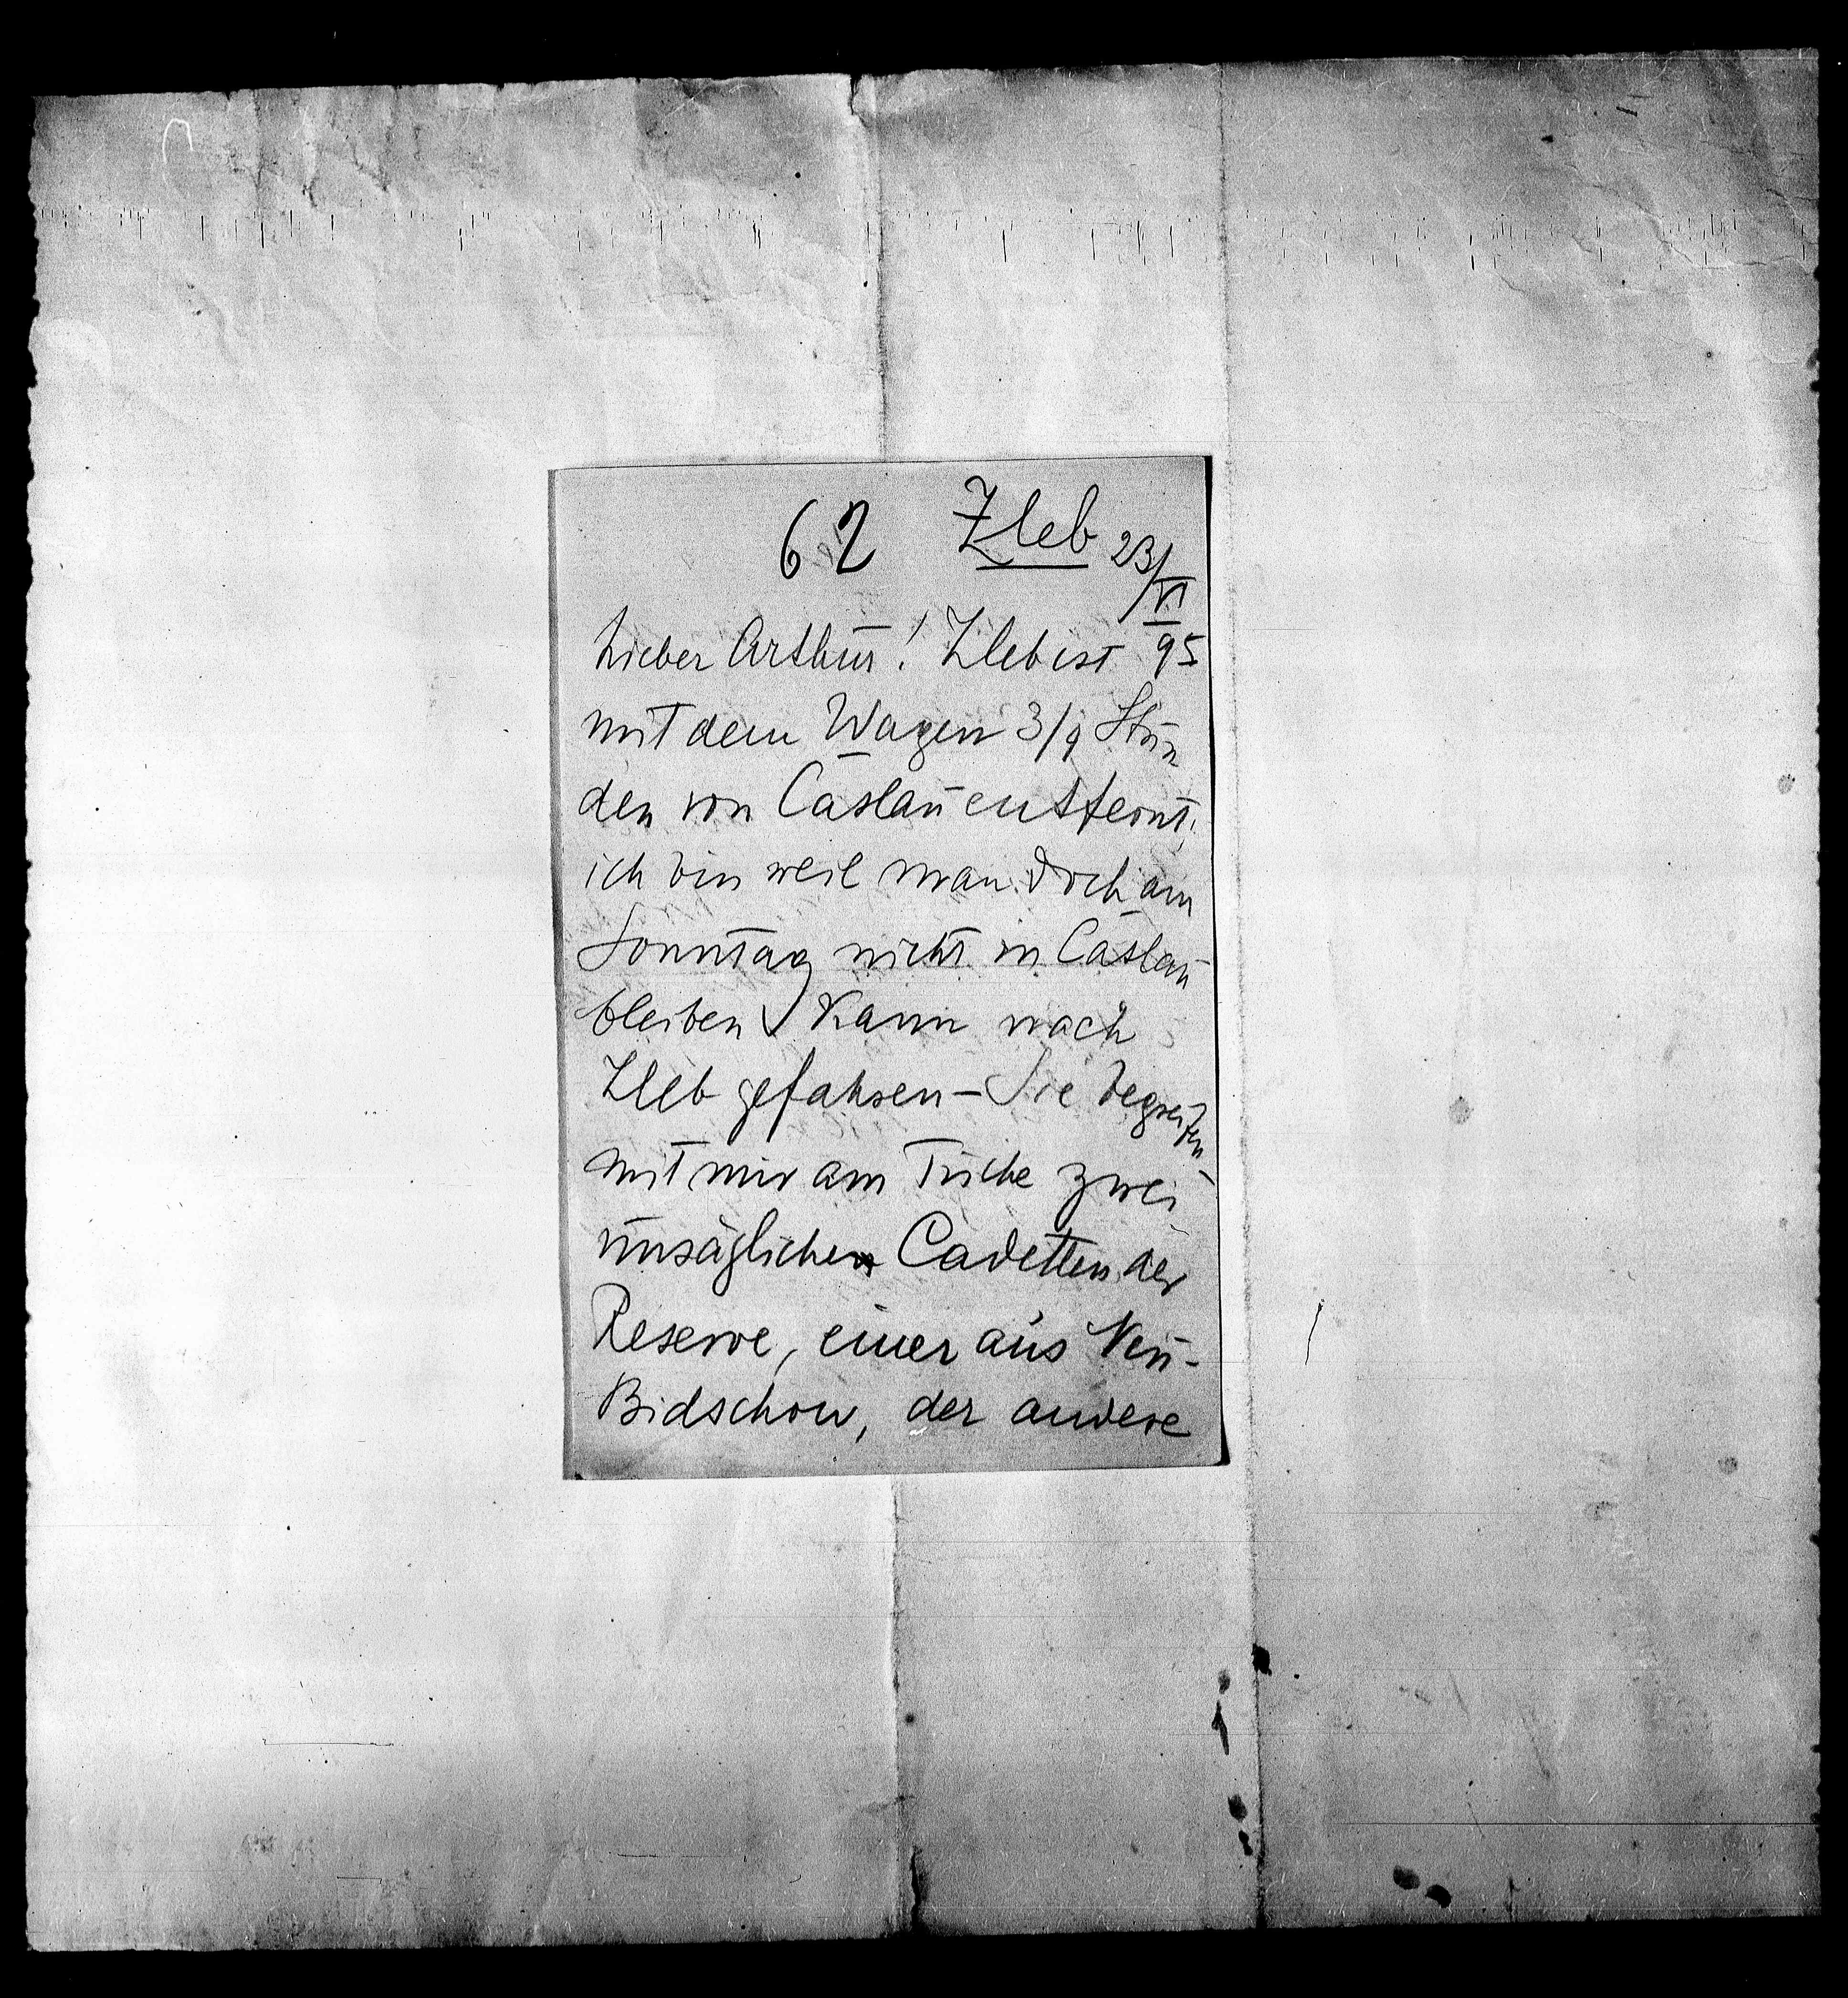 62 Zleb 23/VI 95
Lieber Arthur! Zleb ist
mit dem Wagen 3/4 Stun
den von Caslau entfernt;
ich bin weil man doch am
Sonntag nicht in Caslau
bleiben kann nach
Zleb gefahren – Sie begreifen –
mit mir am Tische zwei
unsägliche Cadetten der
Reserve, einer aus Neu-
Bidschow, der andere